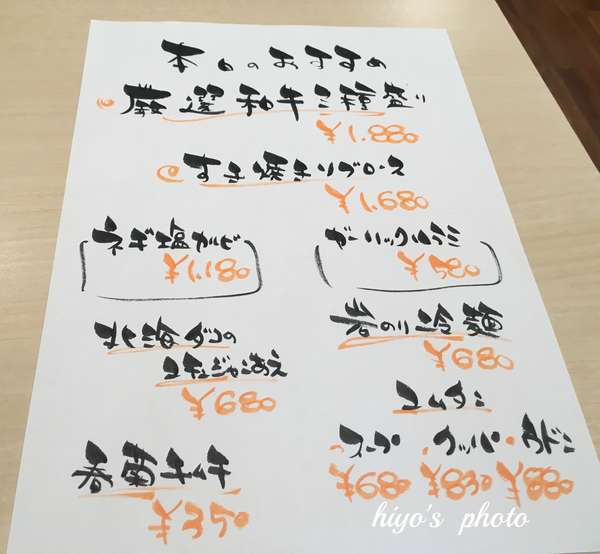 本日のおすすめ
厳選和牛三種盛り
¥1.880
すき焼きリブロース
¥1.680
ネギ塩カルビ
¥1,180
ガーリックハラミ
¥580
北海ダコの
コチュジャンあえ
¥680
岩のり冷麺
¥680
ユムタン
スープ ¥680
クッパ ¥830
ウドン ¥880
春菊チムチ
¥350
hiyo's photo